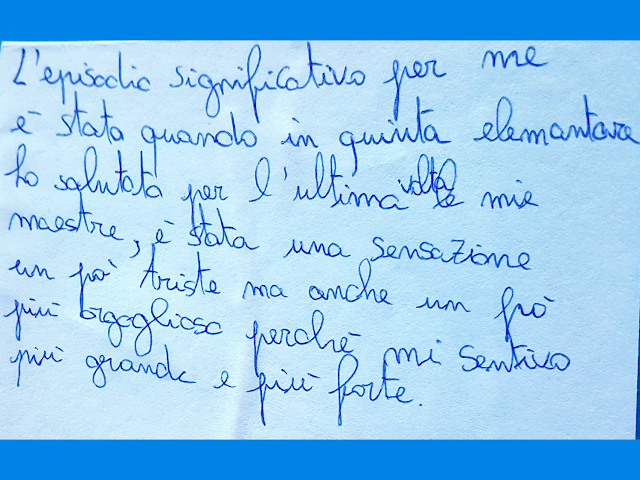 L'episodio significativo per me
è stata quando in quinta elementare
ho salutata per l'ultima volta le mie
maestre, è stata una sensazione
un pò triste ma anche un pò
più orgogliosa perchè mi sentivo
più grande e più forte.